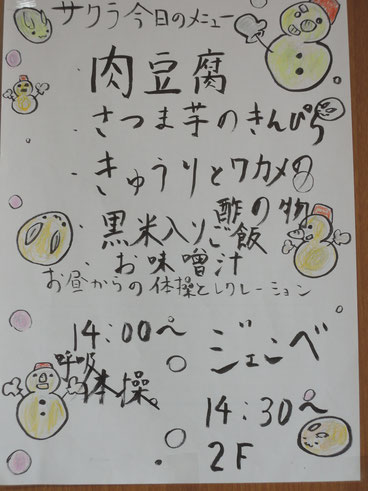 サクラ今日のメニュー
・肉豆腐
・さつま芋のきんぴら
・きゅうりとワカメの
酢の物
・黒米入りご飯
・お味噌汁
お昼からの体操とレクレーション
14:00〜
呼吸
体操。
ジェンベ
14:30〜
2F